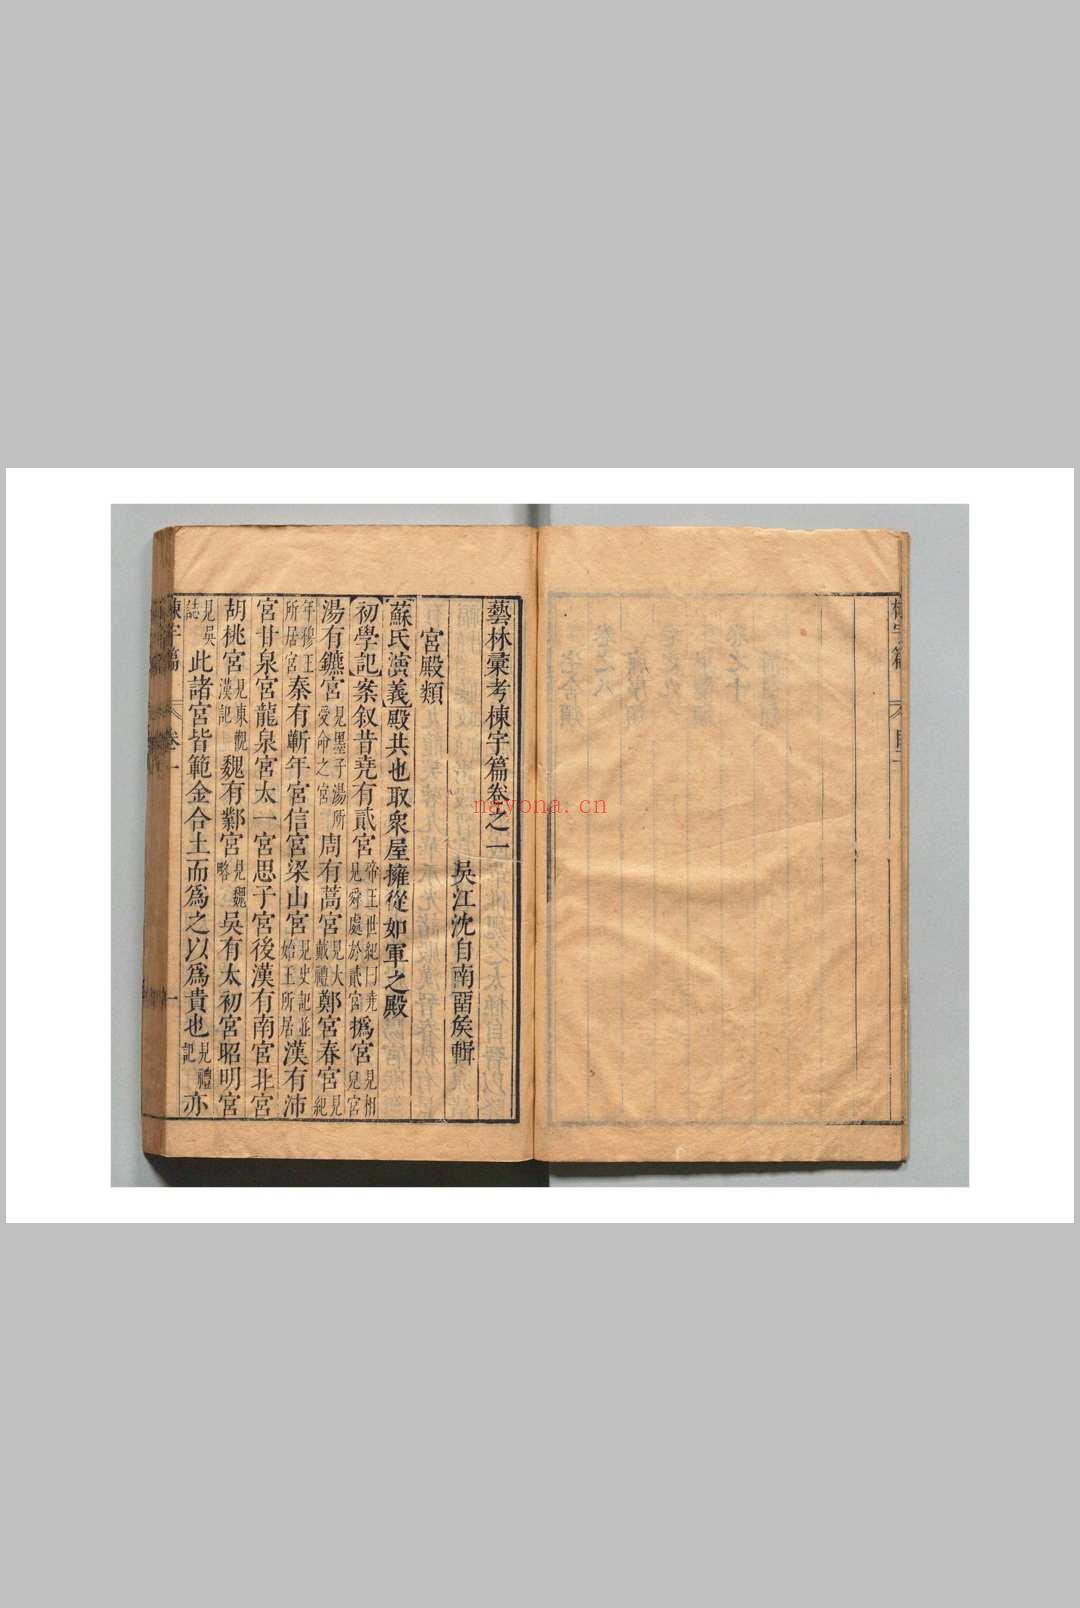 藝林彙考棟宇篇卷之一
吳江沈自南畱矦輯
宮殿類
蘇氏演義殿共也取衆屋擁從如軍之殿
初學記案叙昔堯有貳宮帝王世紀堯見舜處於貳宮撝宮見相兒宮
湯有鑣宮見墨子湯所受命之宮周有蒿宮見大戴禮鄭宮春宮見紀
年穆王所居宮秦有蘄年宮信宮梁山宮見史記並始王所居漢有沛
宮甘泉宮龍泉宮太一宮思子宮後漢有南宮北宮
胡桃宮見東觀漢記魏有鄴宮見魏略吳有太初宮昭明宮
見吳誌此諸宮皆範金合土而爲之以爲貴也見禮記亦
棟宇篇 卷一 一
nayona.cn